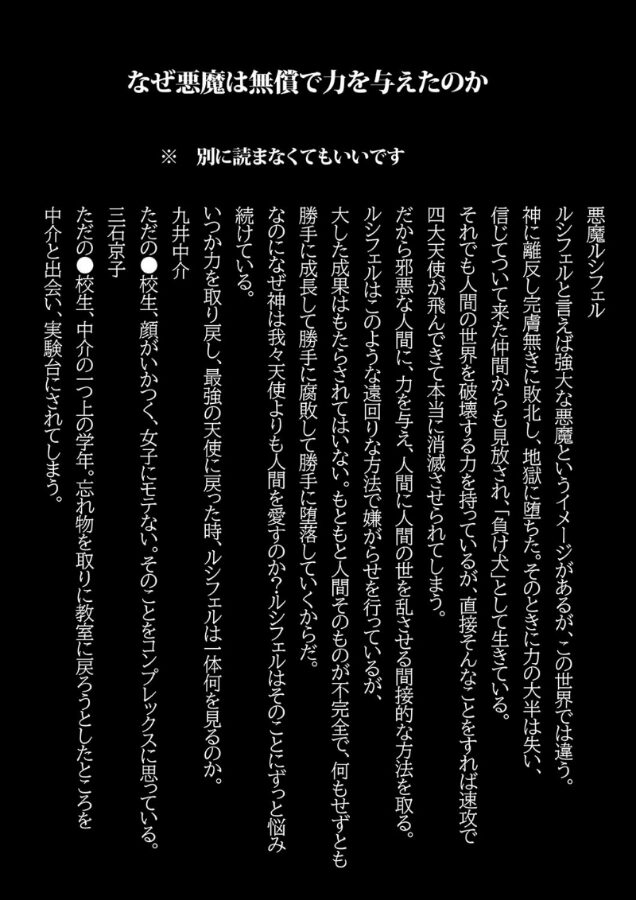 なぜ悪魔は無償で力を与えたのか
※　別に読まなくてもいいです
悪魔ルシフェル
ルシフェルと言えば強大な悪魔というイメージがあるが、この世界では違う。
神に離反し完膚無きに敗北し、地獄に堕ちた。そのときに力の大半は失い、
信じてついて来た仲間からも見放され、「負け犬」として生きている。
それでも人間の世界を破壊する力を持っているが、直接そんなことをすれば速攻で
四大天使が飛んできて本当に消滅させられてしまう。
だから邪悪な人間に、力を与え、人間に人間の世を乱させる間接的な方法を取る。
ルシフェルはこのような遠回りな方法で嫌がらせを行っているが、
大した成果はもたらされてはいない。もともと人間そのものが不完全で、何もせずとも
勝手に成長して勝手に腐敗して勝手に堕落していくからだ。
なのになぜ神は我々天使よりも人間を愛すのか?ルシフェルはそのことにずっと悩み
続けている。
いつか力を取り戻し、最強の天使に戻った時、ルシフェルは一体何を見るのか。
九井中介
ただの●校生、顔がいかつく、女子にモテない。そのことをコンプレックスに思っている。
三石京子
ただの●校生、中介の一つ上の学年。忘れ物を取りに教室に戻ろうとしたところを
中介と出会い、実験台にされてしまう。